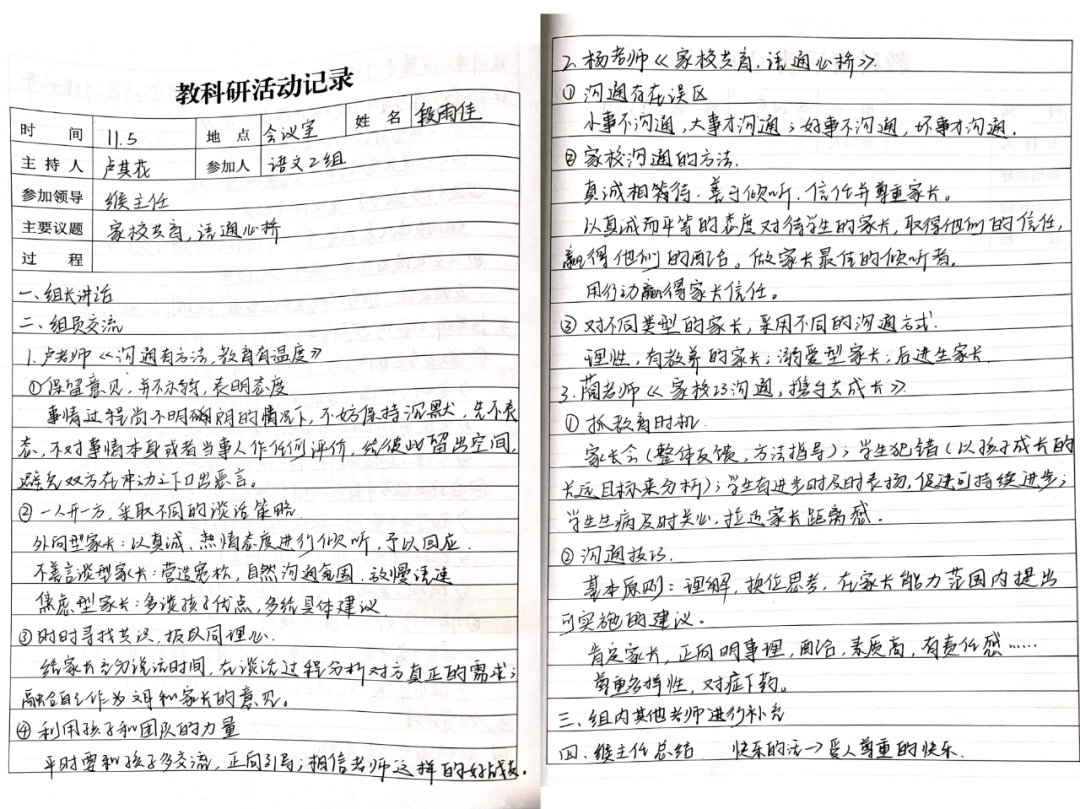 教科研活动记录
时间 11.5 地点 会议室 姓名 段雨佳
主持人 卢其花 参加人 语文2组
参加领导 缑主任
主要议题 家校共育,语通心桥
过程
一、组长讲话
二、组员交流
1.卢老师《沟通有方法,教育有温度》
①保留意见,并不示弱,表明态度
事情过程尚不明确朗的情况下,不妨保持沉默,先不表
态,不对事情本身或者当事人作任何评价,给彼此留出空间,
避免双方在冲动之下口出恶言。
②一人开一方,采取不同的谈话策略
外向型家长:以真诚、热情态度进行倾听,予以回应
不善言谈型家长:营造宽松,自然沟通氛围,放慢语速
焦虑型家长:多谈孩子优点,多给具体建议
③时时寻找共识,报以同理心.
给家长充分说话时间,在谈话过程分析对方真正的需求;
融合自己作为和家长的意见。
④利用孩子和团队的力量
平时要和孩子多交流,正向引导;相信老师这样的好战友.
2.杨老师《家校共育,语通心桥》
①沟通存在误区
小事不沟通,大事才沟通;好事不沟通,坏事才沟通.
②家校沟通的方法.
真诚相等待.善于倾听.信任并尊重家长.
以真诚而平等的态度对待学生的家长,取得他们的信任,
赢得他们的配合。做家长最佳的倾听者。
用行动赢得家长信任。
③对不同类型的家长,采用不同的沟通方式.
理性,有教养的家长;溺爱型家长;后进生家长
3.蔺老师《家校巧沟通,携手共成长》
①抓教育时机.
家长会(整体反馈,方法指导);学生犯错(以孩子成长的
长远目标来分析);学生有进步时及时表扬,促进可持续进步;
学生生病及时关心,拉近家长距离感.
②沟通技巧.
基本原则:理解,换位思考,在家长能力范围内提出
可实施的建议。
肯定家长,正向明事理,配合,素质高,有责任感……
尊重多样性,对症下药。
三、组内其他老师进行补充
四、缑主任总结 快乐的活→受人尊重的快乐.